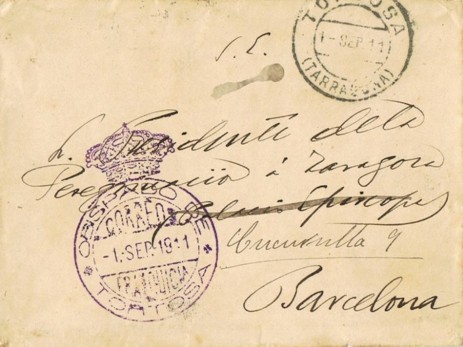 TORTOSA
1-SEP.11
(TARRAGONA)
S. E.
Sr. Presidente de la
Peregrinació á Zaragoza
Palacio Episcopal
Cucurulla 9
Barcelona
OBISPADO DE
CORREO
-1.SEP.1911
FRANQUICIA
TORTOSA